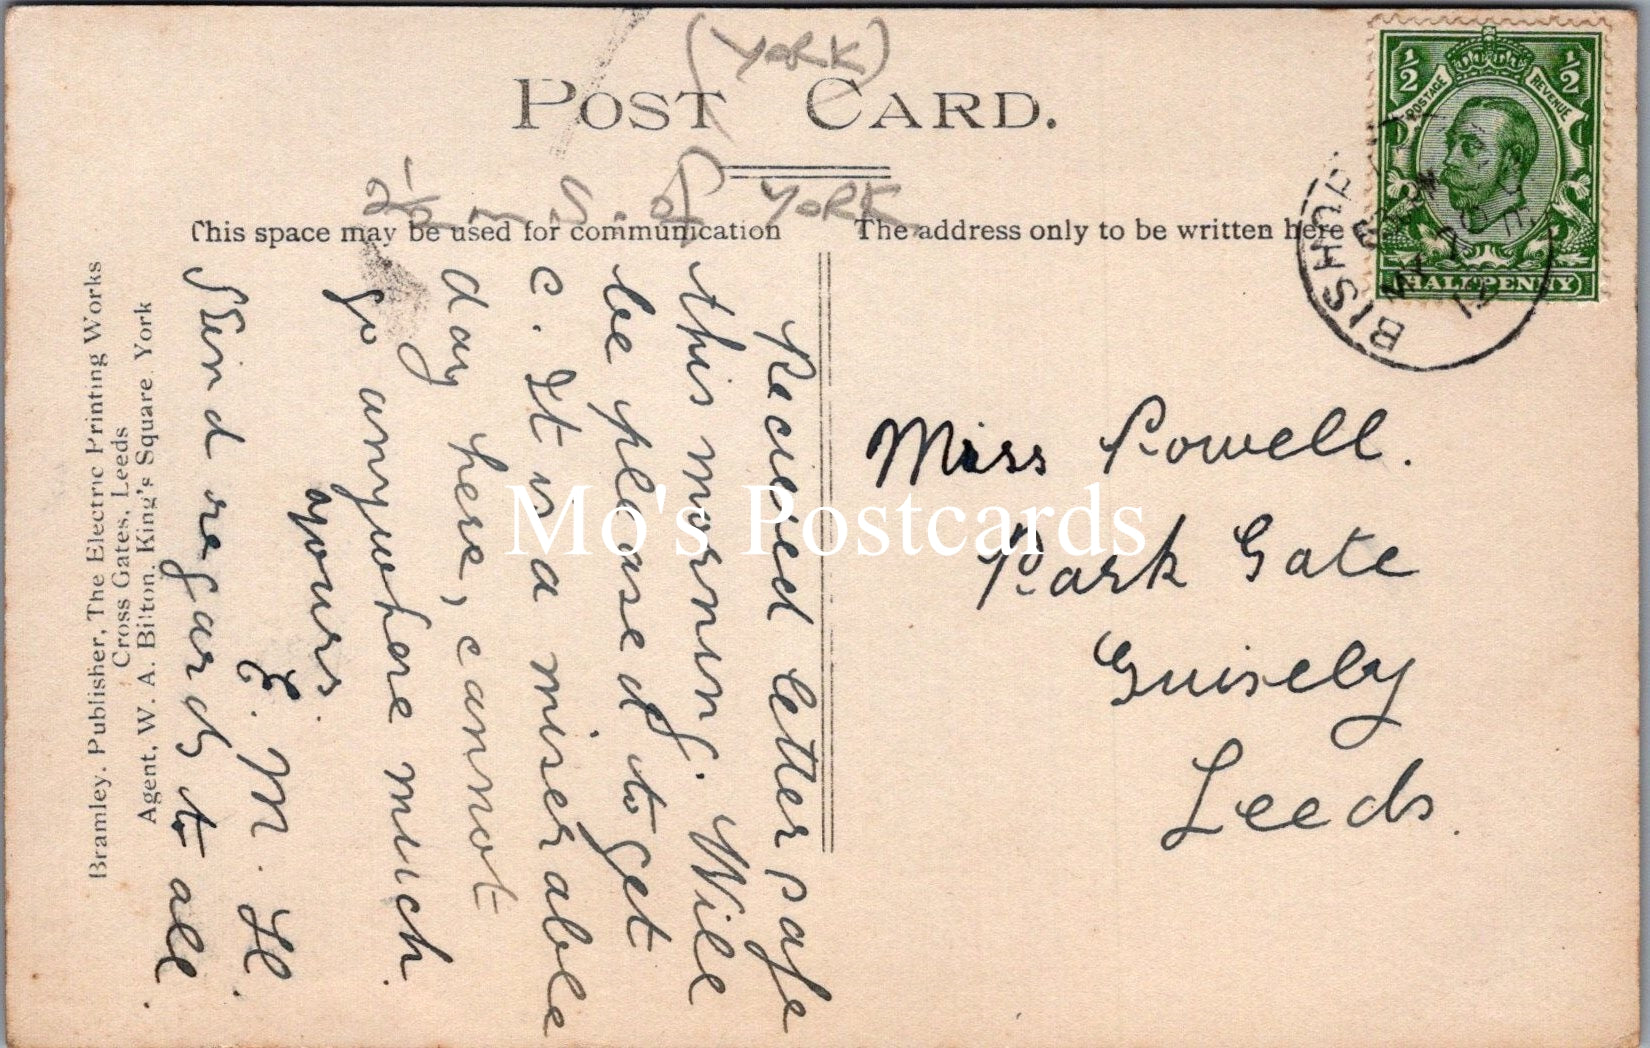 (YORK)
POST CARD.
2½ m S. of YORK
This space may be used for communication
The address only to be written here
½ ½
POSTAGE REVENUE
HALFPENNY
BISHOP
Recieved letter safe
this morning. Will
be pleased to get
c. It is a miserable
day here, cannot
go anywhere much.
yours.
E. M. H.
Kind regards to all.
Miss Powell.
Park Gate
Guisely
Leeds.
Bramley. Publisher, The Electric Printing Works
Cross Gates, Leeds
Agent, W. A. Bilton, King's Square. York
Mo's Postcards